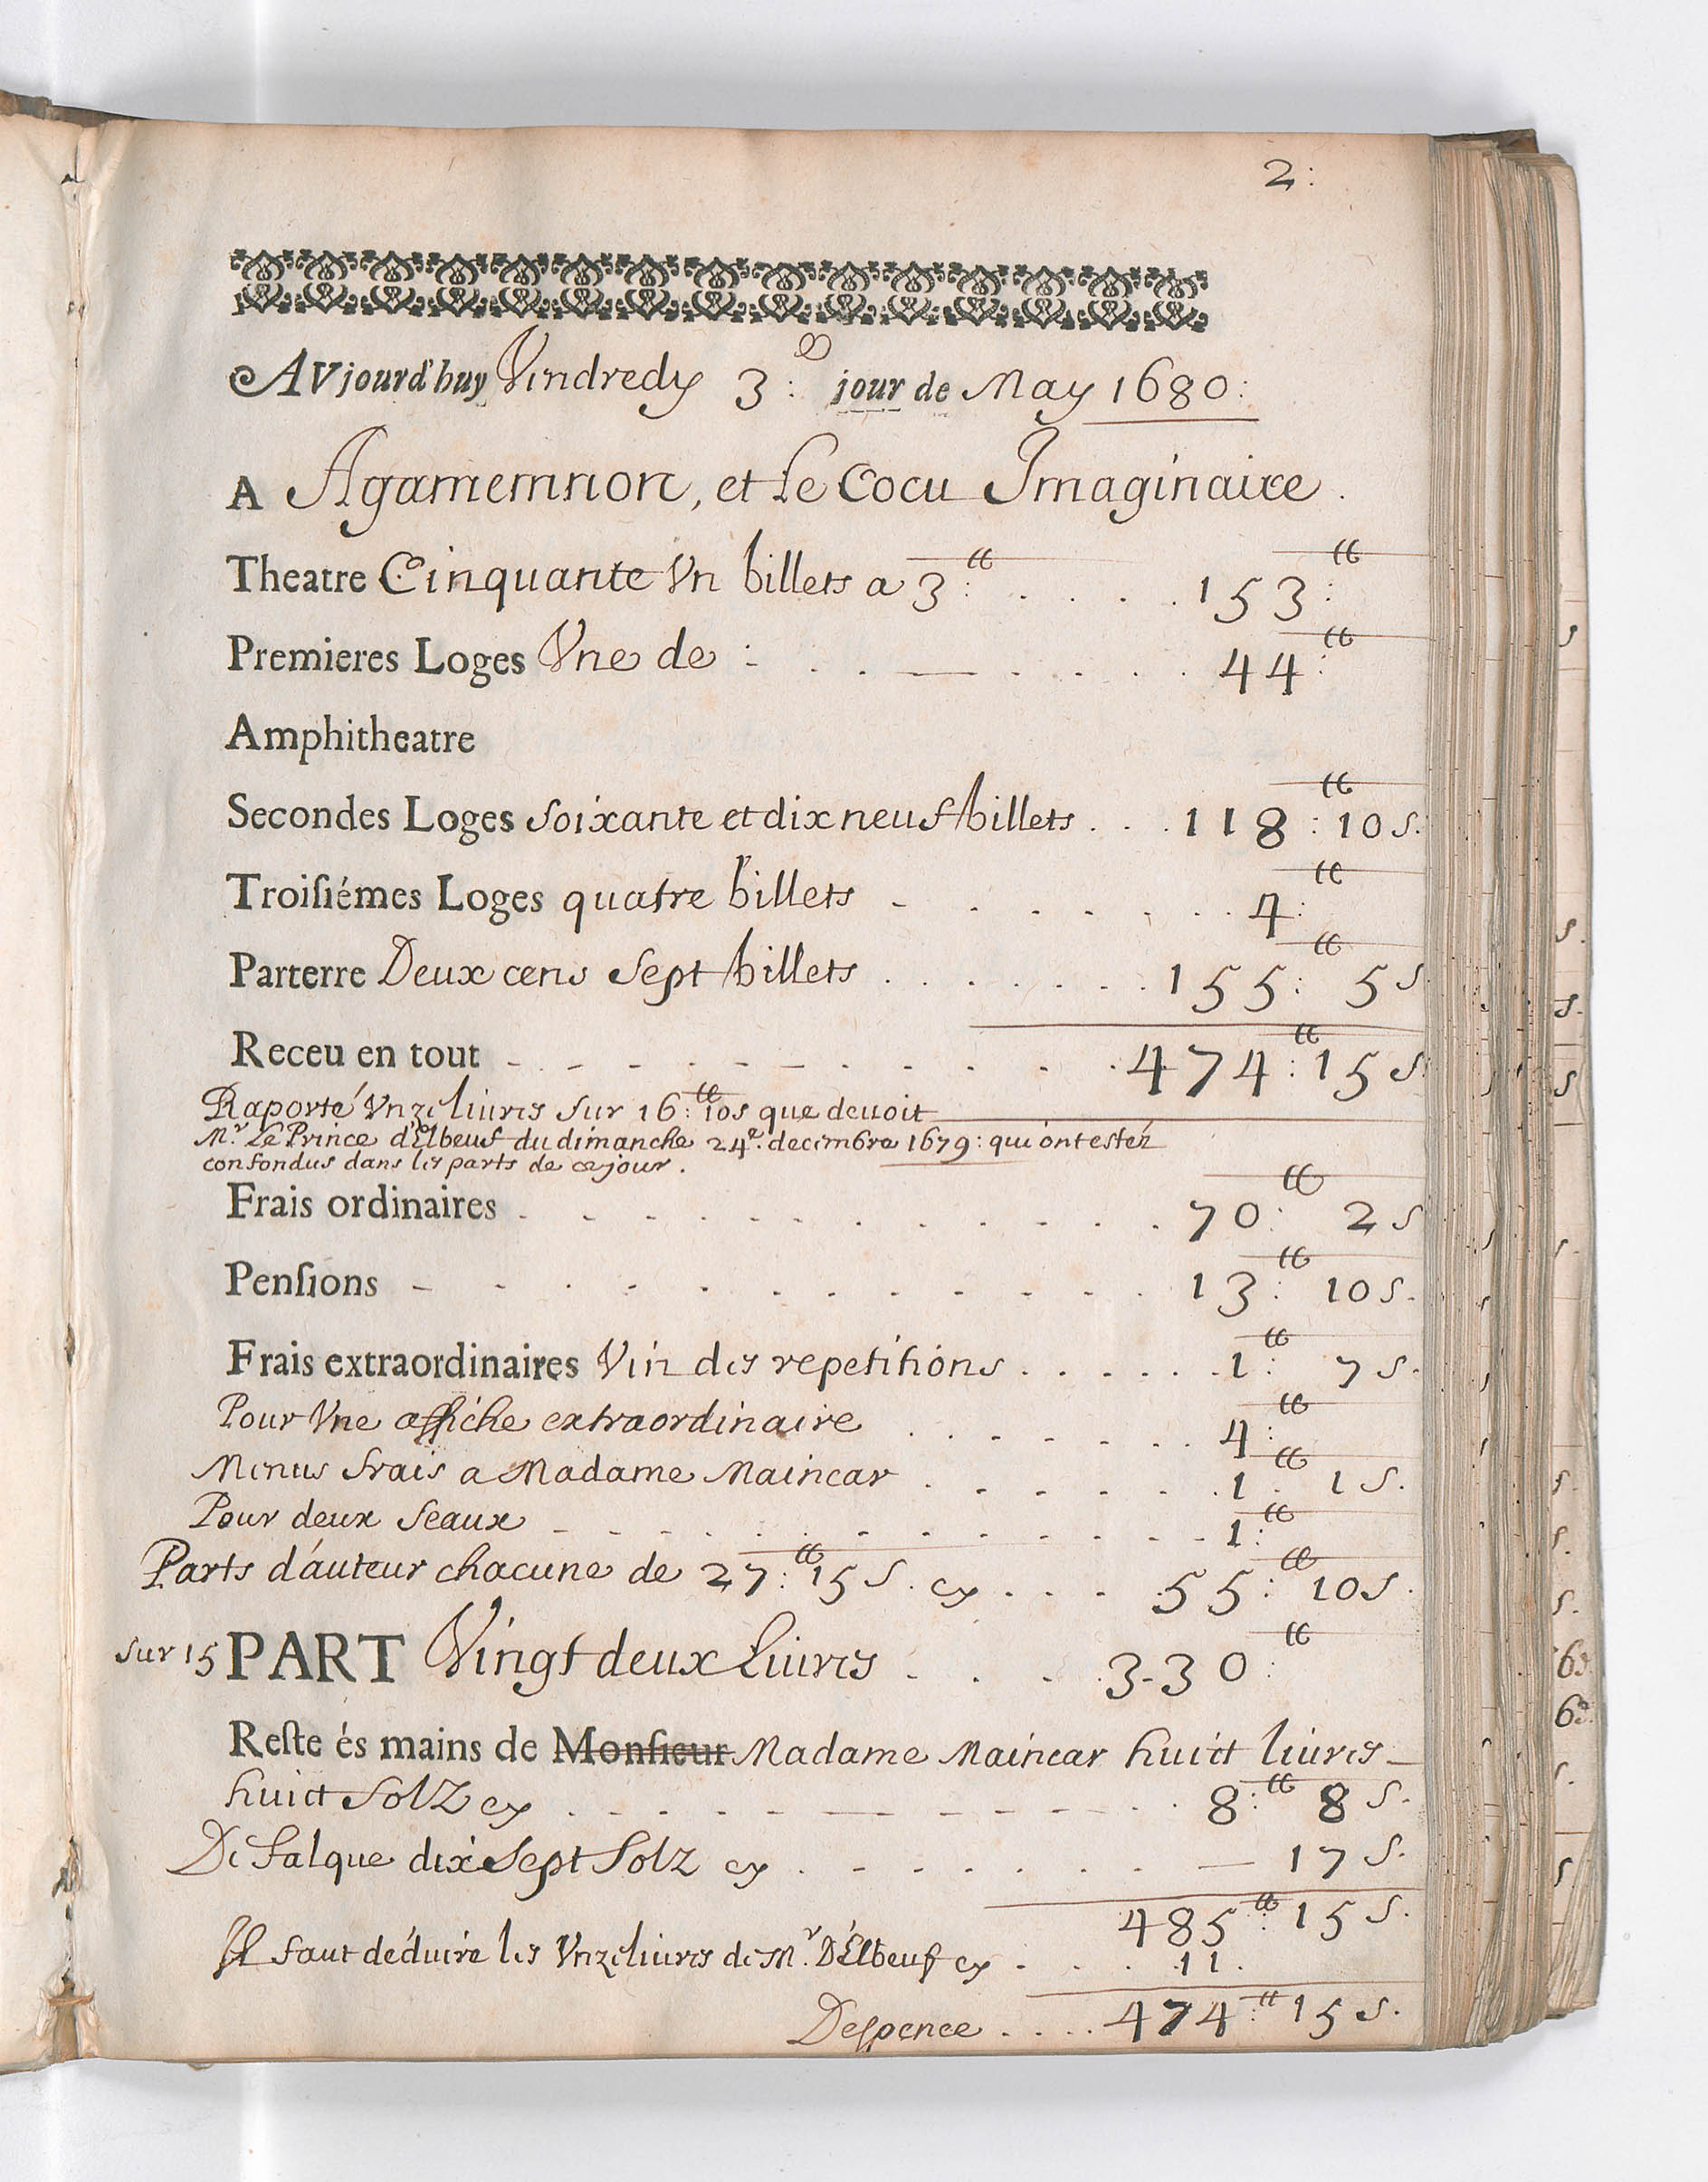 2:
AVjourd'huy Vendredy 3: jour de May 1680:
A Agamemnon, et Le Cocu Imaginaire.
Theatre Cinquante Vn billets a 3:tt . . . . 153:tt
Premieres Loges Vne de : . . — . . . . 44:tt
Amphitheatre
Secondes Loges Soixante et dix neuf billets . . . 118:tt 10 s.
Troisiémes Loges quatre billets - . . . . . . . 4:tt
Parterre Deux cens Sept billets . . . . . . . 155:tt 5 s
Receu en tout - - - - - - - - . . . . 474:tt 15 s
Raporté Vnze liures Sur 16:tt 10s que deuoit
Mr. Le Prince d'Elbeuf du dimanche 24e. decembre 1679: qui ont estéz
confondus dans les parts de ce jour.
Frais ordinaires . . . . . . . . . . . 70:tt 2 s
Pensions - . . . . . . . . . . . . 13:tt 10 s.
Frais extraordinaires Vin des repetitions . . . . . . 1:tt 7 s.
Pour Vne affiche extraordinaire . . . . . . . 4:tt
Menus frais a Madame Maincar . . . . . . . 1.tt 1 s.
Pour deux Seaux - - - - . . . . . . . - - 1:tt
Parts d'auteur chacune de 27:tt 15 s. cy . . . . 55:tt 10 s.
Sur 15 PART Vingt deux Liures . . . 3-30:tt
Reste és mains de Monsieur Madame Maincar huict liures
huict Solz cy . . . . . . . . . . . 8:tt 8 s.
De falque dix Sept Solz cy . . . . . . . — 17 s.
485:tt 15 s.
Il faut déduire les Vnze liures de Mr. D'Elbeuf cy . . . . 11.
Despence . . . . 474:tt 15 s.